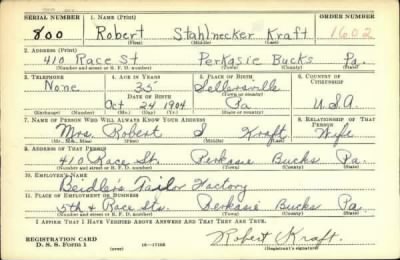 SERIAL NUMBER 1. NAME (Print) ORDER NUMBER
800 Robert Stahlnecker Kraft 1602
(First) (Middle) (Last)
2. ADDRESS (Print)
410 Race St. Perkasie Bucks Pa.
(Number and street or R. F. D. number) (Town) (County) (State)
3. TELEPHONE 4. AGE IN YEARS 5. PLACE OF BIRTH 6. COUNTRY OF CITIZENSHIP
None 35 Sellersville
DATE OF BIRTH (Town or county)
Oct 24 1904 Pa U.S.A
(Exchange) (Number) (Mo.) (Day) (Yr.) (State or country)
7. NAME OF PERSON WHO WILL ALWAYS KNOW YOUR ADDRESS 8. RELATIONSHIP OF THAT PERSON
Mrs. Robert S Kraft Wife
(Mr., Mrs., Miss) (First) (Middle) (Last)
9. ADDRESS OF THAT PERSON
410 Race St. Perkasie Bucks Pa.
(Number and street or R. F. D. number) (Town) (County) (State)
10. EMPLOYER'S NAME
Beidler's Tailor Factory
11. PLACE OF EMPLOYMENT OR BUSINESS
5th & Race Sts. Perkasie Bucks Pa
(Number and street or R. F. D. number) (Town) (County) (State)
I AFFIRM THAT I HAVE VERIFIED ABOVE ANSWERS AND THAT THEY ARE TRUE.
REGISTRATION CARD
D. S. S. Form 1 (over) 16—17105 Robert Kraft.
(Registrant's signature)